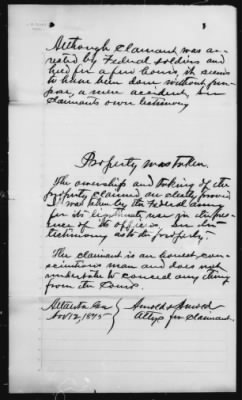 Although claimant was ar-
rested by Federal soldiers and
held for a few hours, it seems
to have been done without pur-
pose, a mere accident, see
claimants own testimony
Property was taken.
The ownership and taking of the
property claimed are clearly proved
was taken by the Federal army
for its legitimate use in the pres-
ence of its officers, see the
testimony as to the property.
The claimant is an honest con-
scientious man and does not
undertake to conceal any thing
from the Court.
Atlanta Ga
Nov 12, 1875
Arnold & Arnold
Attys for Claimant.